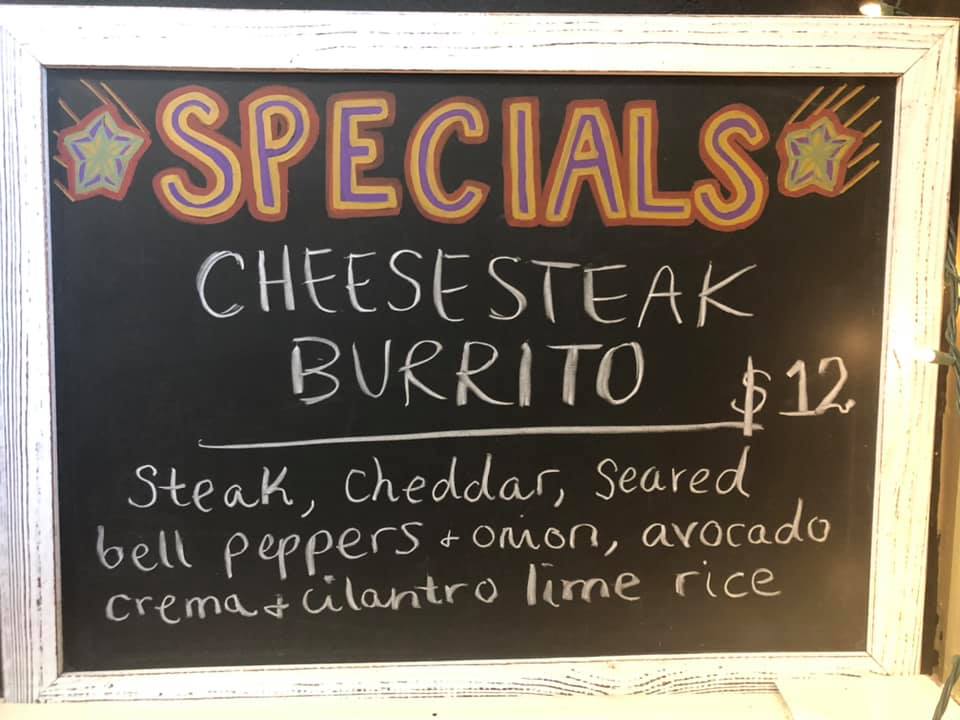 SPECIALS
CHEESESTEAK
BURRITO
$12
Steak, cheddar, Seared
bell peppers + onion, avocado
crema + cilantro lime rice